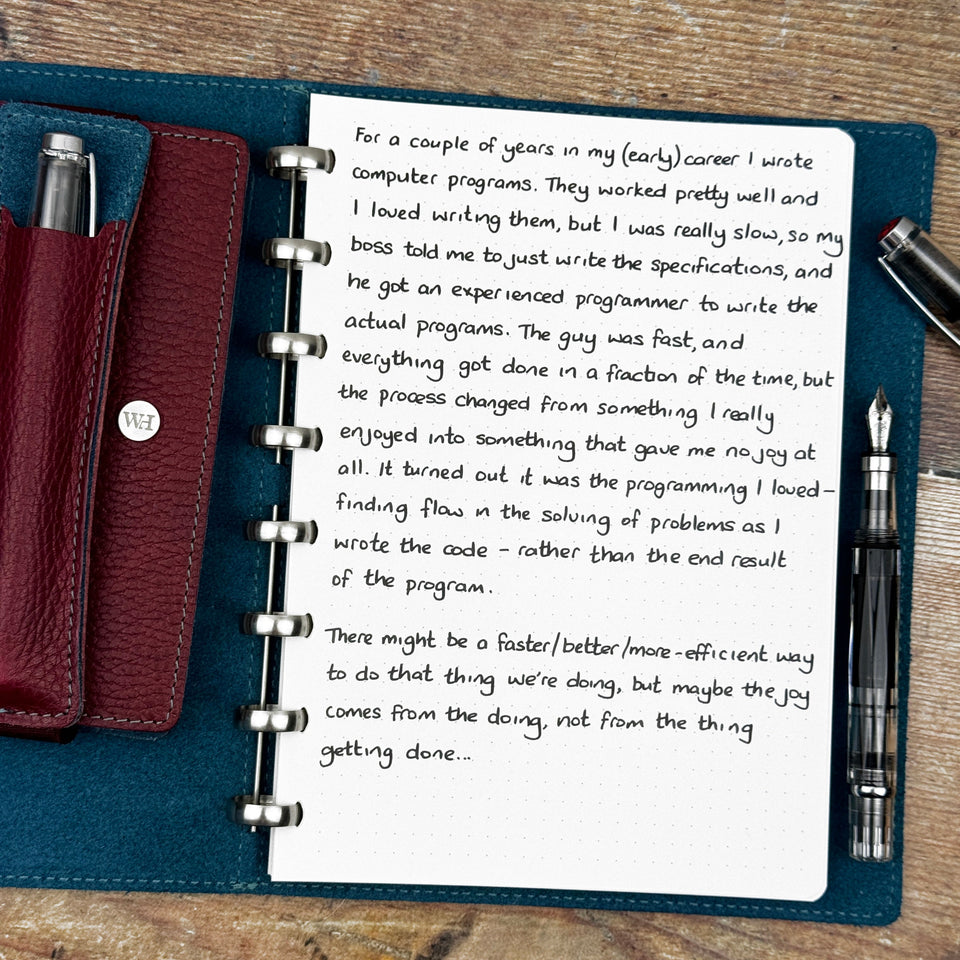 WH
For a couple of years in my (early) career I wrote
computer programs. They worked pretty well and
I loved writing them, but I was really slow, so my
boss told me to just write the specifications, and
he got an experienced programmer to write the
actual programs. The guy was fast, and
everything got done in a fraction of the time, but
the process changed from something I really
enjoyed into something that gave me no joy at
all. It turned out it was the programming I loved –
finding flow in the solving of problems as I
wrote the code – rather than the end result
of the program.
There might be a faster/better/more-efficient way
to do that thing we're doing, but maybe the joy
comes from the doing, not from the thing
getting done...